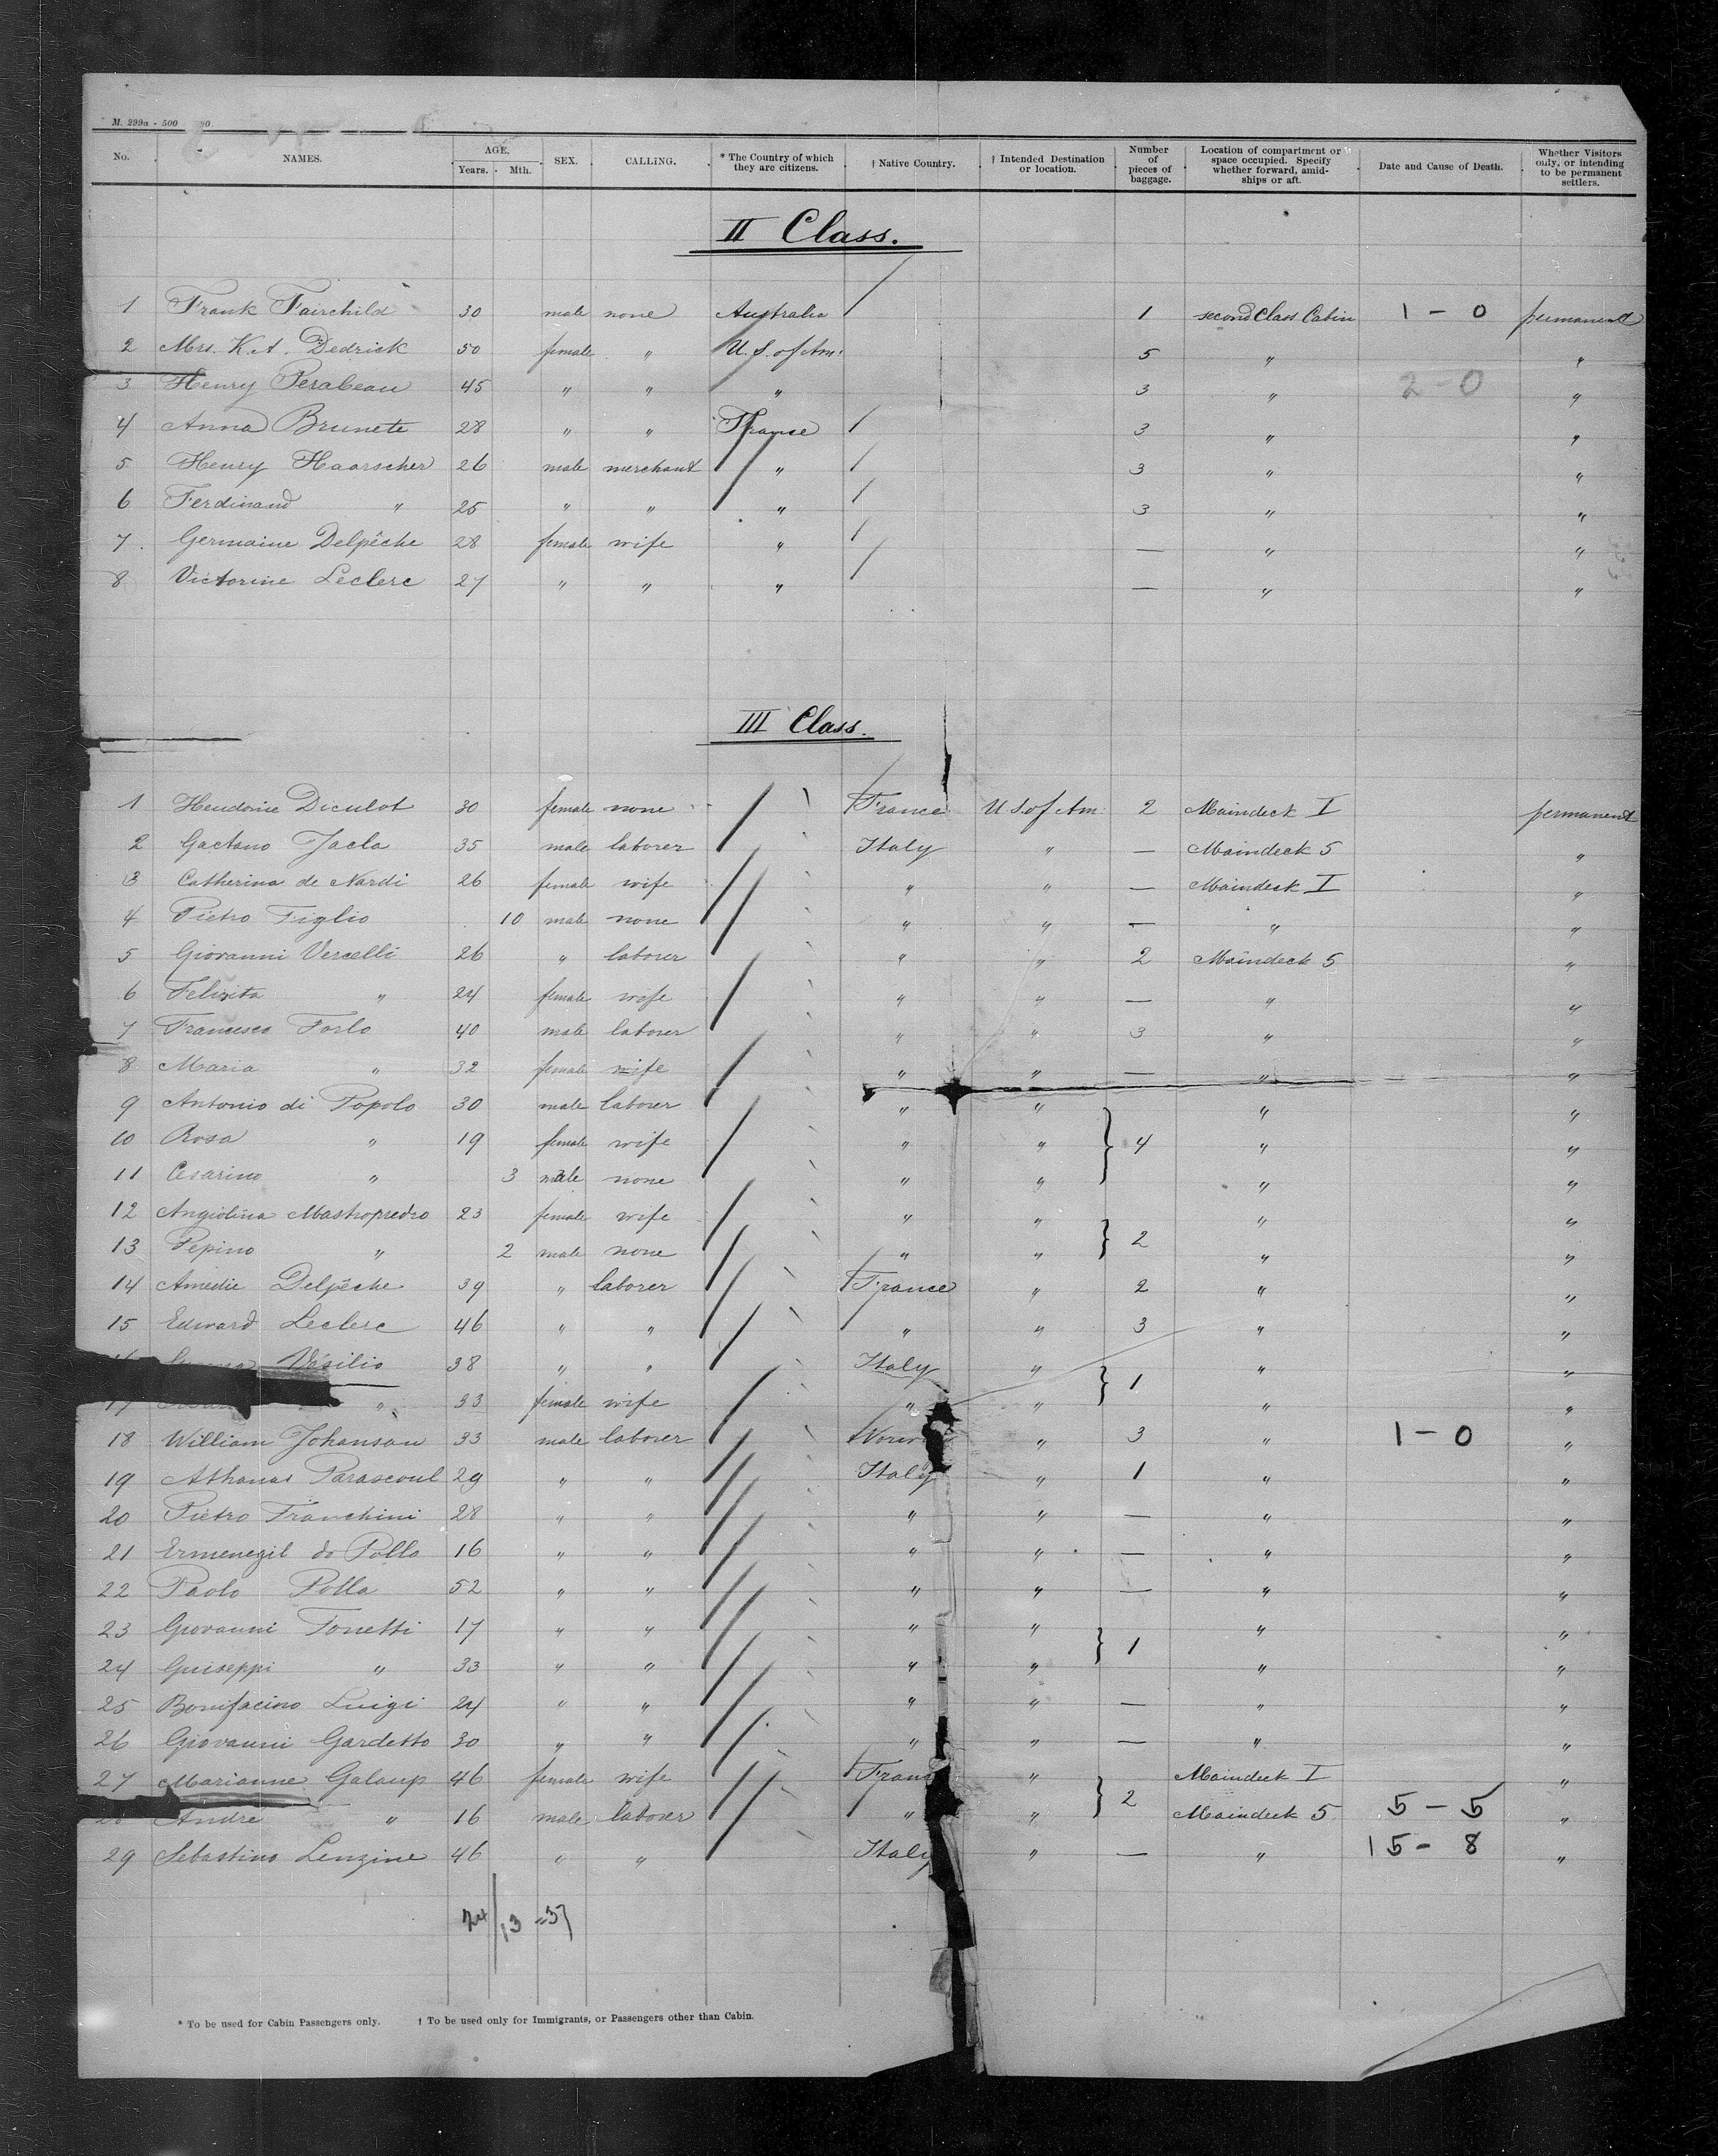 M. 299a - 500
No. NAMES. AGE. Years. Mth. SEX. CALLING. * The Country of which they are citizens. † Native Country. † Intended Destination or location. Number of pieces of baggage. Location of compartment or space occupied. Specify whether forward, amidships or aft. Date and Cause of Death. Whether Visitors only, or intending to be permanent settlers.
II Class.
1 Frank Fairchild 30 male none Australia 1 second Class Cabin 1 - 0 permanent
2 Mrs. K.A. Dedrick 50 female " U. S. of Am. 5 " "
3 Henry Perabeau 45 " " " 3 " 2 - 0 "
4 Anna Brunete 28 " " France 3 " "
5 Henry Haarscher 26 male merchant " 3 " "
6 Ferdinand " 25 " " " 3 " "
7. Germaine Delpêche 28 female wife " — " "
8 Victorine Leclerc 27 " " " — " "
III Class.
1 Diculot 30 female none France U S of Am. 2 Maindeck I permanent
2 Gaetano Jacla 35 male laborer Italy " — Maindeck 5 "
3 Catherina de Nardi 26 female wife " " — Maindeck I "
4 Pietro Figlio 10 male none " " — " "
5 Giovanni Vercelli 26 " laborer " " 2 Maindeck 5 "
6 Felizita " 24 female wife " " — " "
7 Francesco Forlo 40 male laborer " " 3 " "
8 Maria " 32 female wife " " — " "
9 Antonio di Popolo 30 male laborer " " " "
10 Rosa " 19 female wife " " } 4 " "
11 Cesarino " 3 male none " " " "
12 Angiolina Mastropredro 23 female wife " " " "
13 Pepino " 2 male none " " } 2 " "
14 Amedie Delpêche 39 " laborer France " 2 " "
15 Edward Leclerc 46 " " " " 3 " "
Vasilio 38 " " Italy " " "
17 " 33 female wife " " } 1 " "
18 William Johanson 33 male laborer " 3 " 1 - 0 "
19 Athanas Parascoul 29 " " Italy " 1 " "
20 Pietro Franchini 28 " " " " — " "
21 Ermenegil do Pollo 16 " " " " — " "
22 Paolo Polla 52 " " " " — " "
23 Giovanni Tonetti 17 " " " " " "
24 Guiseppi " 33 " " " " } 1 " "
25 Bonifacino Luigi 24 " " " " — " "
26 Giovanni Gardetto 30 " " " " — " "
27 Marianne Galaup 46 female wife Franc " Maindeck I "
28 Andre " 16 male laborer " " } 2 Maindeck 5 5 - 5 "
29 Sebastino Lenzine 46 " " Italy " — " 15 - 8 "
24/13 = 37
* To be used for Cabin Passengers only. † To be used only for Immigrants, or Passengers other than Cabin.